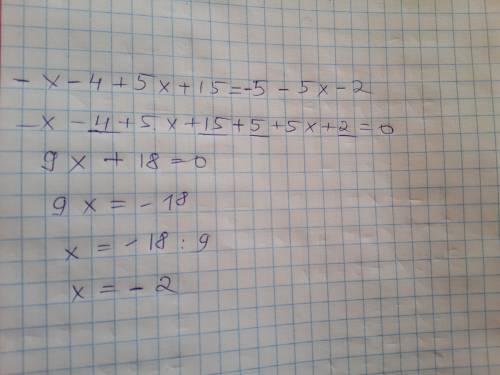 - x - 4 + 5x + 15 = -5 - 5x - 2
- x - 4 + 5x + 15 + 5 + 5x + 2 = 0
9x + 18 = 0
9x = - 18
x = - 18 : 9
x = - 2